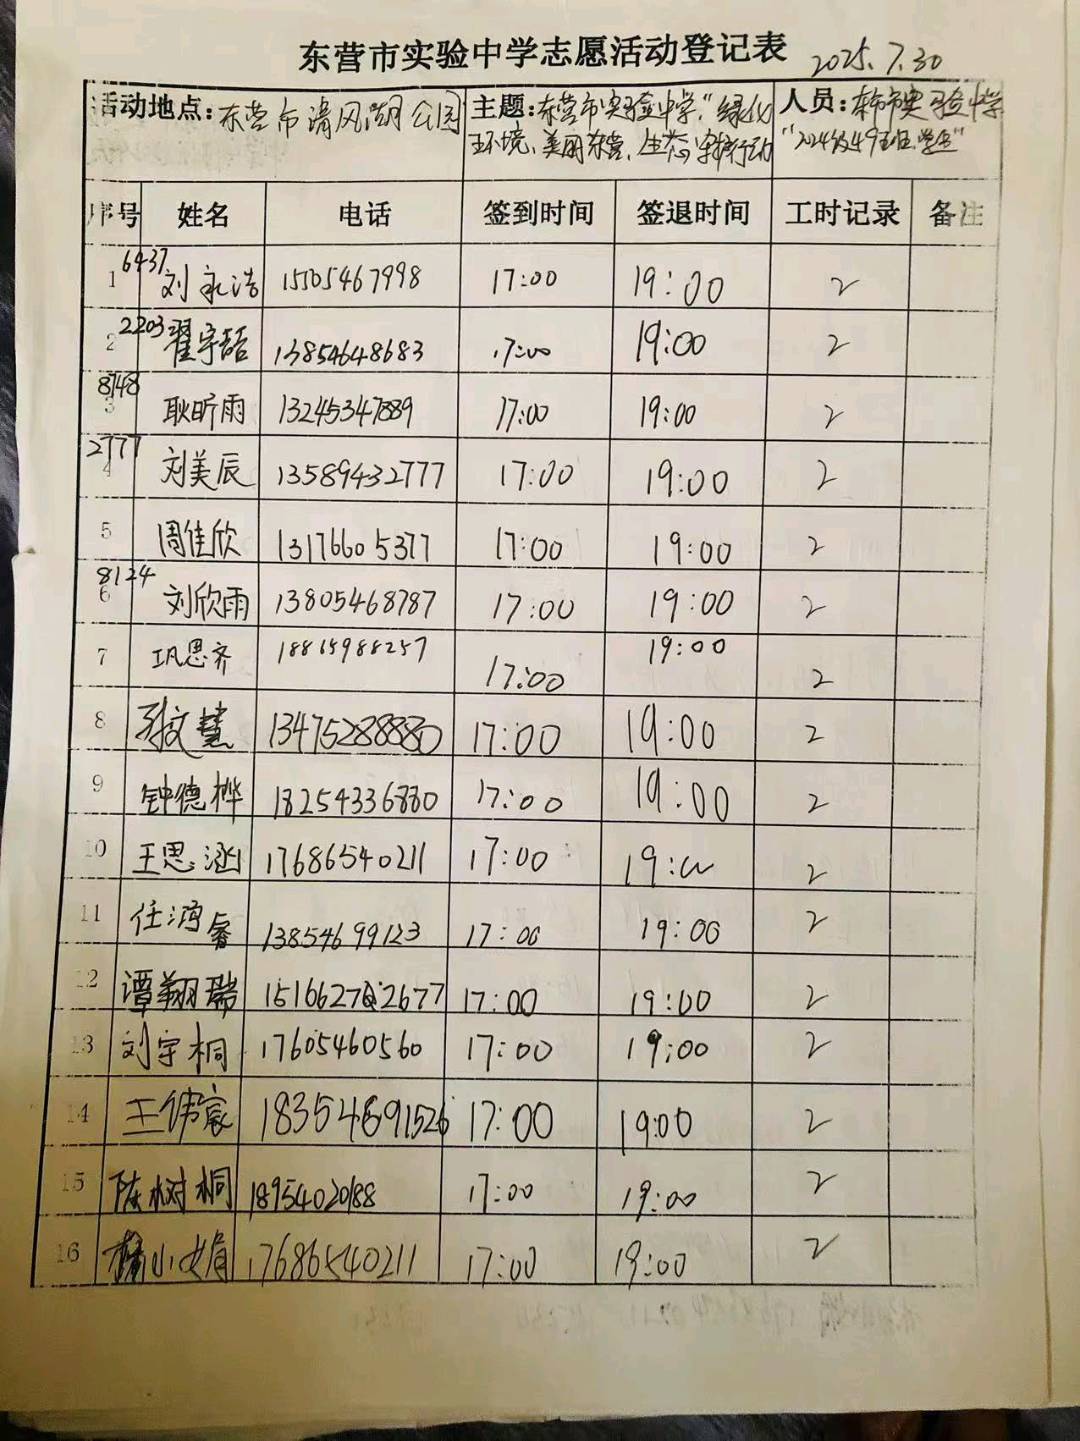 东营市实验中学志愿活动登记表 2025.7.30
活动地点:东营市清风湖公园 主题:东营市实验中学"绿化 人员:东营市实验中学
环境、美丽东营、生态 行动 "2024级49班学生"
序号 姓名 电话 签到时间 签退时间 工时记录 备注
6437
1 刘永浩 15505467998 17:00 19:00 2
2203
2 翟宇喆 13854648683 17:00 19:00 2
8748
3 耿昕雨 13245347889 17:00 19:00 2
2777
4 刘美辰 13589432777 17:00 19:00 2
5 周佳欣 13176605377 17:00 19:00 2
8124
6 刘欣雨 13805468787 17:00 19:00 2
7 巩思齐 18815988257 17:00 19:00 2
8 文慧 13475288880 17:00 19:00 2
9 钟德桦 18254336880 17:00 19:00 2
10 王思涵 17686540211 17:00 19:00 2
11 任鸿睿 13854699123 17:00 19:00 2
12 谭翔瑞 17:00 19:00 2
13 刘宇桐 17605460560 17:00 19:00 2
14 王伟宸 18354691526 17:00 19:00 2
15 陈树桐 18954020188 17:00 19:00 2
16 小娟 17686540211 17:00 19:00 2